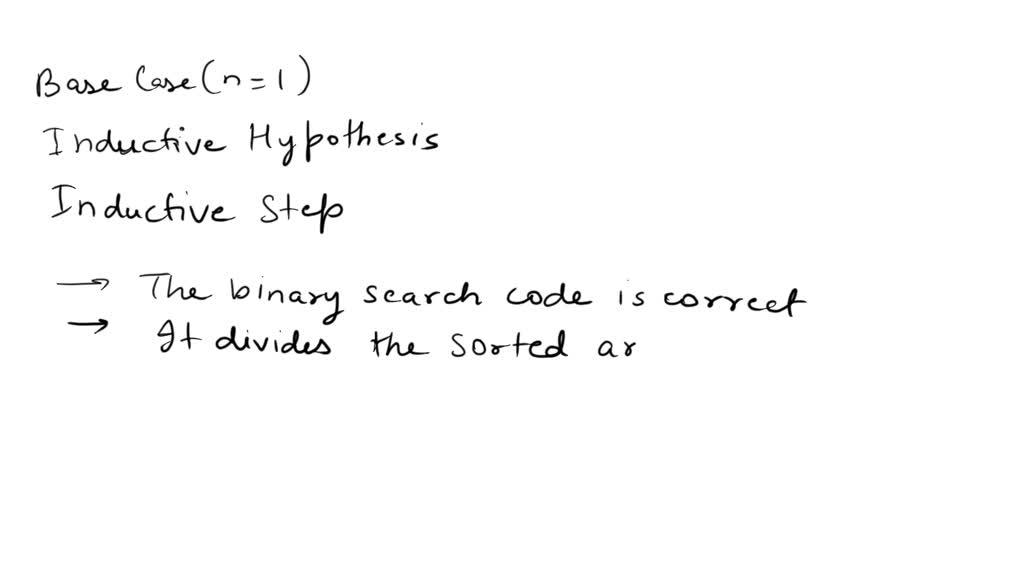 Base Case (n = 1)
Inductive Hypothesis
Inductive Step
→ The binary search code is correct
→ It divides the sorted ar